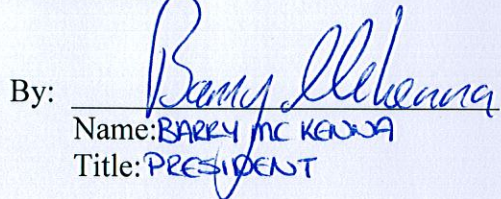 By: Barry McKenna
Name: BARRY MC KENNA
Title: PRESIDENT